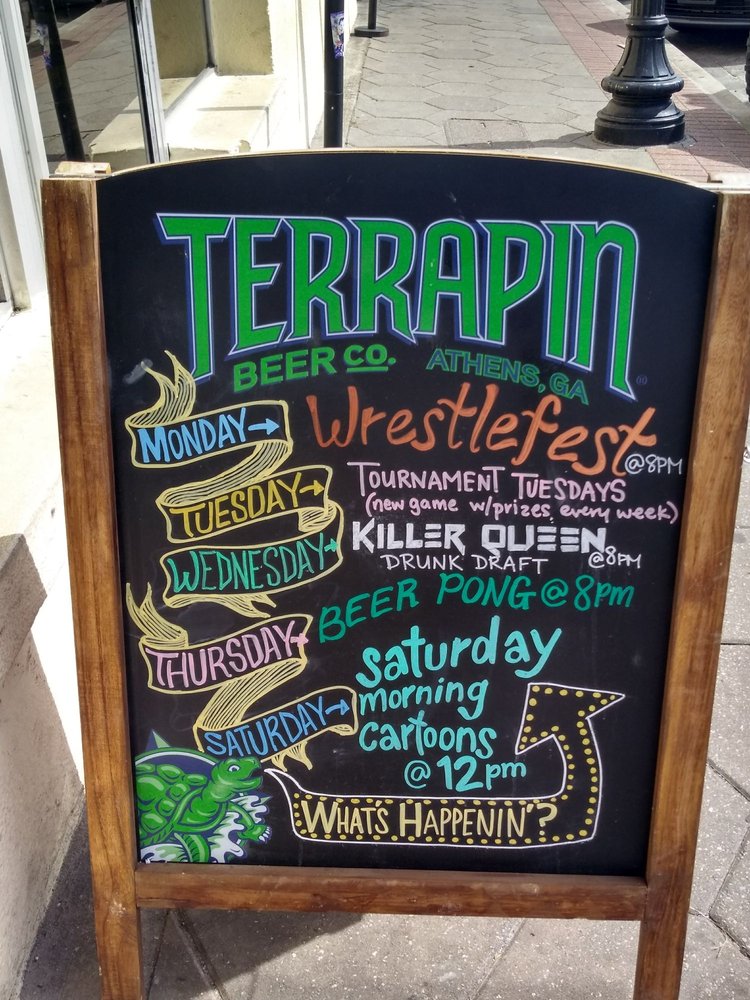 TERRAPIN
BEER CO. ATHENS, GA
MONDAY→ Wrestlefest @8PM
TUESDAY→ TOURNAMENT TUESDAYS
(new game w/prizes every week)
WEDNESDAY→ KILLER QUEEN
DRUNK DRAFT @8PM
THURSDAY→ BEER PONG @ 8pm
SATURDAY→ Saturday
morning
cartoons
@ 12pm
WHAT'S HAPPENIN'?